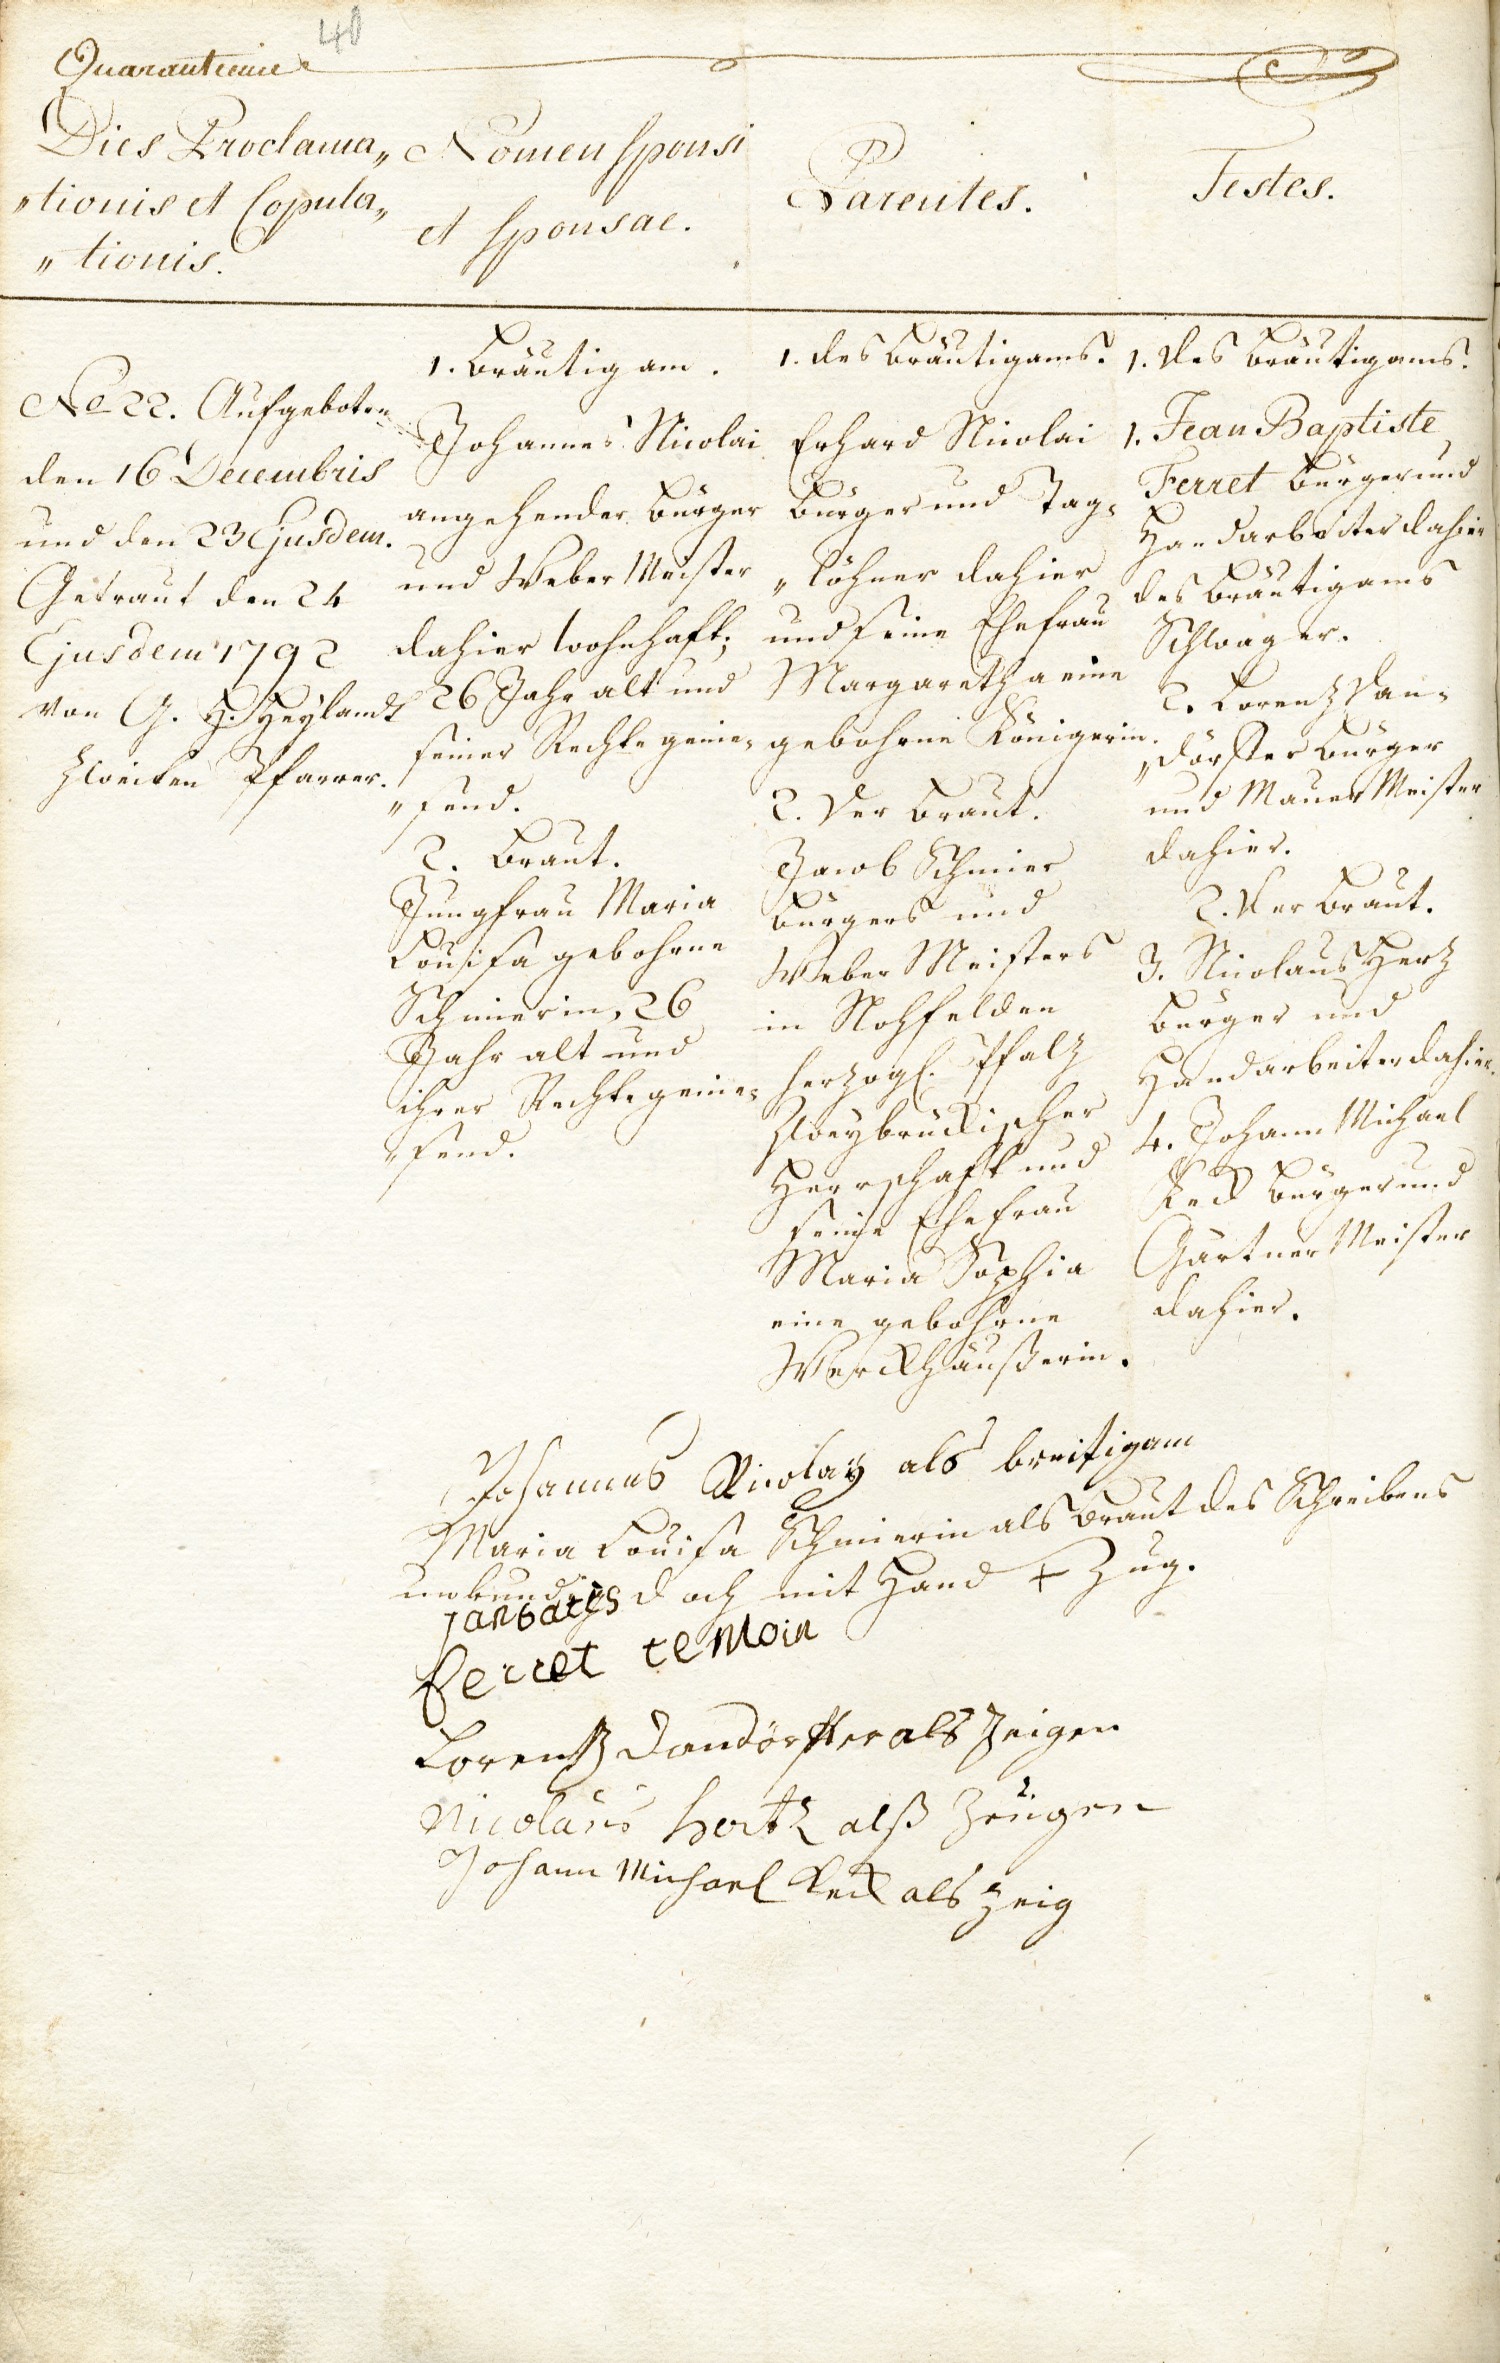 40
Quarantieme
Dies Proclama„
„tionis et Copula„
„tionis.
Nomen sponsi
et sponsae.
Parentes.
Testes.
No 22. Aufgeboten
den 16 Decembris
und den 23 Ejusdem.
Getraut den 24
Ejusdem 1792
von G. H. Heylandt
Zweiten Pfarrer.
1. Bräutigam.
Johannes Nicolai
angehender Bürger
und Weber Meister
dahier wohnhaft;
26 Jahr alt und
seiner Rechte genie-
„send.
2. Braut.
Jungfrau Maria
Louisa gebohrne
Schmierin, 26
Jahr alt und
ihrer Rechte genie-
„send.
1. des Bräutigams.
Erhard Nicolai
Bürger und Tag-
„löhner dahier
und seine Ehefrau
Margaretha eine
gebohrne Königerin.
2. Der Braut.
Jacob Schmier
Bürgers und
Weber Meisters
in Nohfelden
herzogl. Pfalz
Zweybrückischer
Herrschaft und
seine Ehefrau
Maria Sophia
eine gebohrne
Werckhäußerin.
1. des Bräutigams.
1. Jean Baptiste
Ferret Bürger und
Handarbeiter dahier
des Bräutigams
Schwager.
2. Lorenz Dan-
„dörffer Bürger
und Maurer Meister
dahier.
2. Der Braut.
3. Nicolaus Herz
Bürger und
Handarbeiter dahier.
4. Johann Michael
Keck Bürger und
Gärtner Meister
dahier.
Johannes Nicolay als breitigam
Maria Louisa Schmierin als Braut des Schreibens
unkundig doch mit Hand + Zug.
janbatis
ferret temoin
Lorentz Dandörffer als Zeigen
Nicolaus hertz alß Zeügen
Johann Michael Keck als Zeig